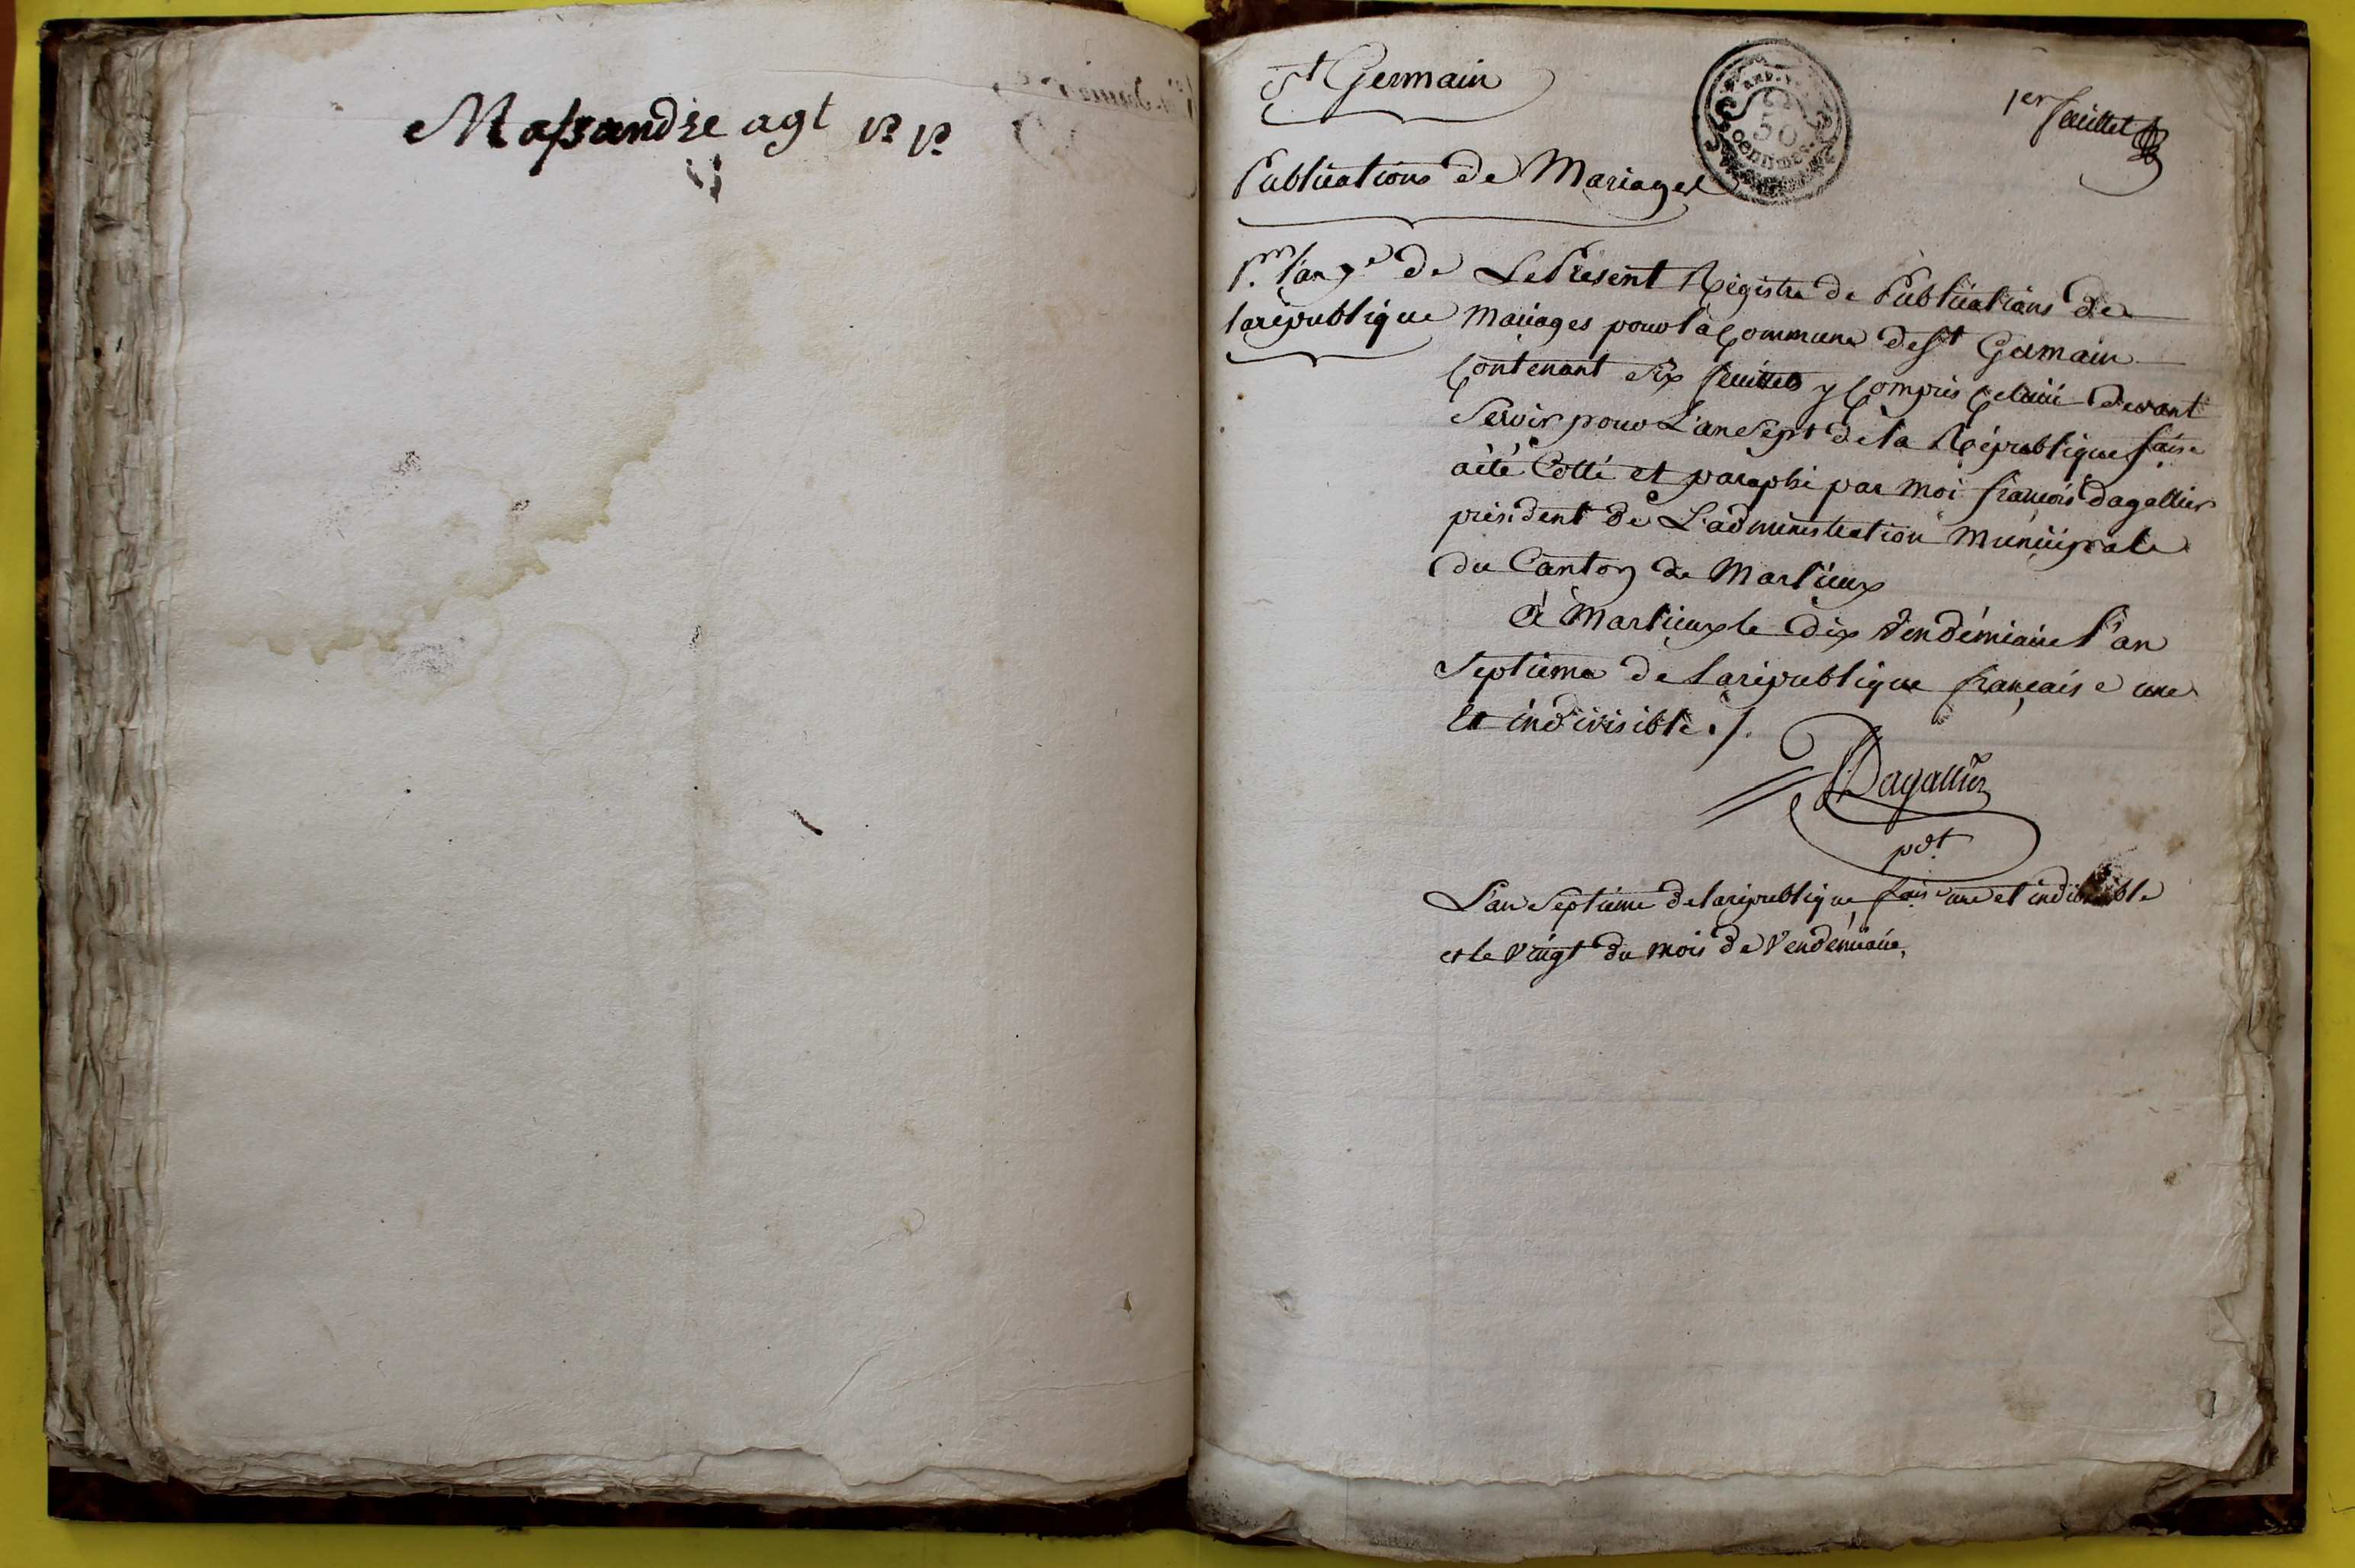 Massandre agt
St Germain
1er feuillet
REP.
50
CENTIMES
Publications de Mariages
Pr. l'an 7e de
larépublique
Le Présent Régistre de Publications de
Mariages pour la Commune de St Germain
Contenant Six feuillets y Compris Celuici devant
Servir pour L'an Sept de la République faise
aété Cotté et paraphé par moi françois Dagallier
président de L'administration Municipale
du Canton de Marlieux
à Marlieux le dix Vendémiaire l'an
Septieme de larépublique française une
et indivisible ./.
Dagallier
pdt.
L'an Septieme de larépublique faise une et indivisible
et le Vingt du mois de Vendémiaire,